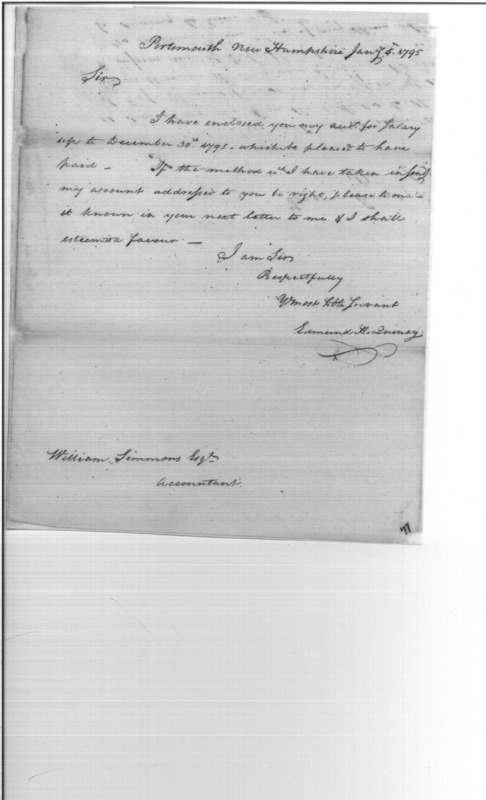 Portsmouth New Hampshire Jany 5. 1795
Sir
I have enclosed you my acct. for Salary
up to December 30th 1795 - which be pleased to have
paid - If the method wch I have taken in sendg
my account addressed to you be right, please to make
it known in your next letter to me & I shall
esteem it a favour. -
I am Sir
Respectfully
Yr most Hble Servant
Edmund H. Quincy
William Simmons Esqr.
Accountant.